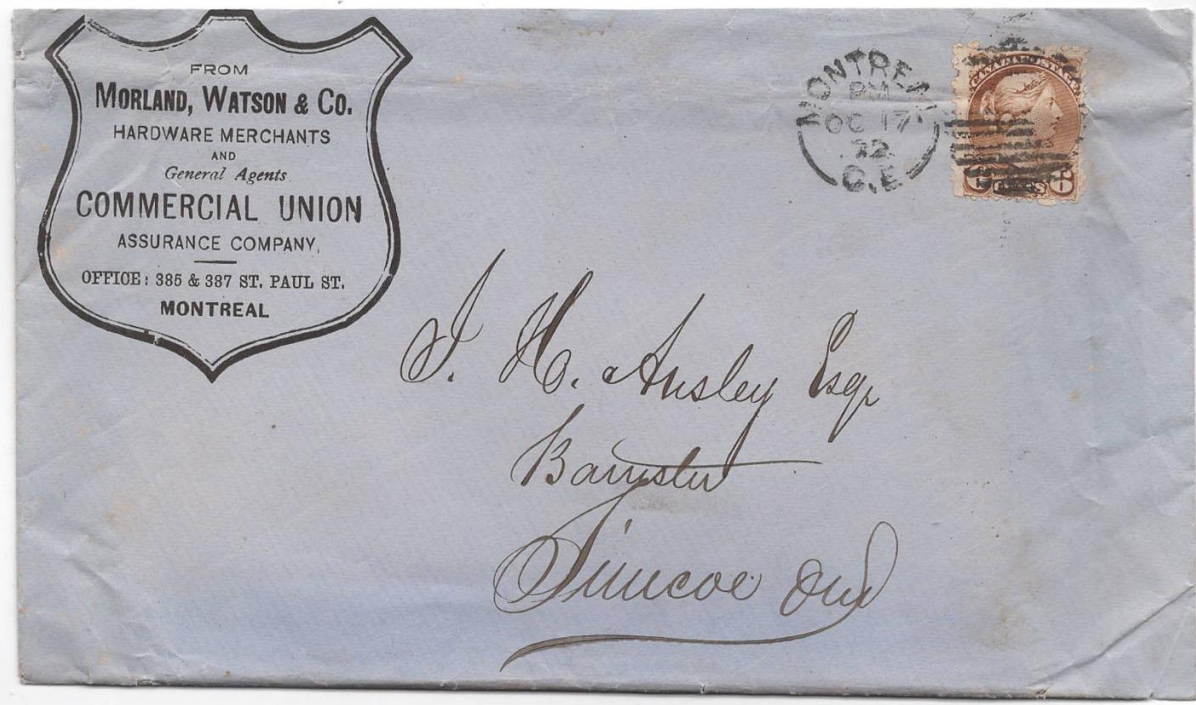 FROM
MORLAND, WATSON & CO.
HARDWARE MERCHANTS
AND
General Agents
COMMERCIAL UNION
ASSURANCE COMPANY,
OFFICE: 385 & 387 ST. PAUL ST.
MONTREAL
MONTREAL
PM
OC 17
72
C.E
CANADA POSTAGE
J. H. Ansley Esqr
Barrister
Simcoe Ont